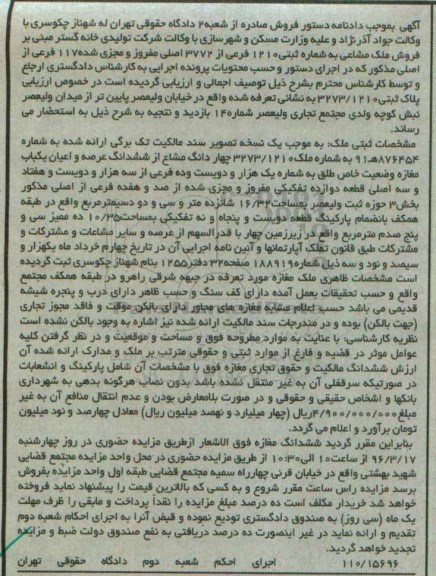 آگهی بموجب دادنامه دستور فروش صادره از شعبه۲ دادگاه حقوقی تهران له شهناز چکوسری با
وکالت جواد آذرنژاد و علیه وزارت مسکن و شهرسازی با وکالت شرکت تولیدی خانه گستر مبنی بر
فروش ملک مشاعی به شماره ثبتی۱۲۱۰ فرعی از ۳۷۷۲ اصلی مفروز و مجزی شده۱۱۷ فرعی از
اصلی مذکور که در اجرای دستور و حسب محتویات پرونده اجرایی به کارشناس دادگستری ارجاع
و توسط کارشناس محترم بشرح ذیل توصیف اجمالی و ارزیابی گردیده است در خصوص ارزیابی
پلاک ثبتی۳۲۷۳/۱۲۱۰ به نشانی تعرفه شده واقع در خیابان ولیعصر پایین تر از میدان ولیعصر
نبش کوچه ولدی مجتمع تجاری ولیعصر شماره۱۴ بازدید و نتجیه به شرح ذیل به استحضار می
رساند.
مشخصات ثبتی ملک: به موجب یک نسخه تصویر سند مالکیت تک برگی ارائه شده به شماره
۸۷۶۴۵۴هـ۹۱ به شماره ملک۳۲۷۳/۱۲۱۰ چهار دانگ مشاع از ششدانگ عرصه و اعیان یکباب
مغازه وضعیت خاص طلق به شماره یک هزار و دویست وده فرعی از سه هزار و دویست و هفتاد
و سه اصلی قطعه دوازده تفکیکی مفروز و مجزی شده از صد و هفده فرعی از اصلی مذکور
بخش۳ حوزه ثبت ولیعصر بمساحت۱۶/۳۲ شانزده متر و سی و دو دسیمترمربع واقع در طبقه
همکف بانضمام پارکینگ قطعه دویست و پنجاه و نه تفکیکی بمساحت۱۰/۳۵ ده ممیز سی و
پنج صدم مترمربع واقع در زیرزمین چهار با قدرالسهم از عرصه و سایر مشاعات و مشترکات و
مشترکات طبق قانون تملک آپارتمانها و آئین نامه اجرایی آن در تاریخ چهارم خرداد ماه یکهزار و
سیصد و نود و سه ذیل شماره۱۸۸۹۱۹ صفحه۳۲ دفتر۱۲۵۵ بنام شهناز چکوسری ثبت گردیده
است مشخصات ظاهری ملک مغازه مورد تعرفه در جبهه شرقی راهرو در طبقه همکف مجتمع
واقع و حسب تحقیقات بعمل آمده دارای کف سنگ و حسب ظاهر دارای درب و پنجره شیشه
قدیمی می باشد حسب اعلام مشابه مغازه های مجاور دارای بالکن موقت و فاقد مجوز تجاری
(جهت بالکن) بوده و در مندرجات سند مالکیت ارائه شده نیز اشاره به وجود بالکن نشده است
نظریه کارشناسی: با عنایت به موارد مطروحه فوق و مساحت و موقعیت و در نظر گرفتن کلیه
عوامل موثر در قضیه و فارغ از موارد ثبتی و حقوقی مترتب بر ملک و مدارک ارائه شده آن
ارزش ششدانگ مالکیت و حقوق تجاری مغازه فوق با مشخصات آن شامل پارکینگ و انشعابات
در صورتیکه سرقفلی آن به غیر منتقل نشده باشد بدون نصاب هرگونه بدهی به شهرداری
بانکها و اشخاص حقیقی و حقوقی و در صورت بلامعارض بودن و عدم انتقال منافع آن به غیر
مبلغ۴/۹۰۰/۰۰۰/۰۰۰ریال (چهار میلیارد و نهصد میلیون ریال) معادل چهارصد و نود میلیون
تومان برآورد و اعلام می گردد.
بنابراین مقرر گردید ششدانگ مغازه فوق الاشعار ازطریق مزایده حضوری در روز چهارشنبه
۹۶/۳/۱۷ از ساعت۱۰ الی۱۰:۳۰ از طریق مزایده حضوری در محل واحد مزایده مجتمع قضایی
شهید بهشتی واقع در خیابان قرنی چهارراه سمیه مجتمع قضایی طبقه اول واحد مزایده بفروش
برسد مزایده راس ساعت مقرر شروع و به کسی که بالاترین قیمت را پیشنهاد نماید فروخته
خواهد شد خریدار مکلف است ده درصد مبلغ مزایده را نقداً پرداخت و مابقی را ظرف مهلت
یک ماه (سی روز) به صندوق دادگستری تودیع نموده و قبض آنرا به اجرای احکام شعبه دوم
تقدیم و ارائه نماید در غیر اینصورت ده درصد دریافتی به نفع صندوق دولت ضبط و مزایده
تجدید خواهد گردید.
۱۱۰/۱۵۶۹۶ اجرای احکام شعبه دوم دادگاه حقوقی تهران